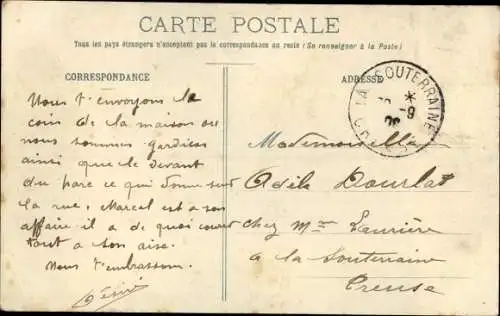 CARTE POSTALE
Tous les pays étrangers n'acceptent pas la correspondance au recto (Se renseigner à la Poste)
CORRESPONDANCE
ADRESSE
LA SOUTERRAINE
Nous t'envoyons le
coin de la maison où
nous sommes gardiens
ainsi que le devant
du parc ce qui donne sur
la rue, Marcel est a son
affaire il a de quoi courir
tout a son aise.
Nous t'embrassons.
Désiré
Mademoiselle
Adèle Dourlat
chez Mme Laurière
a la Souterraine
Creuse